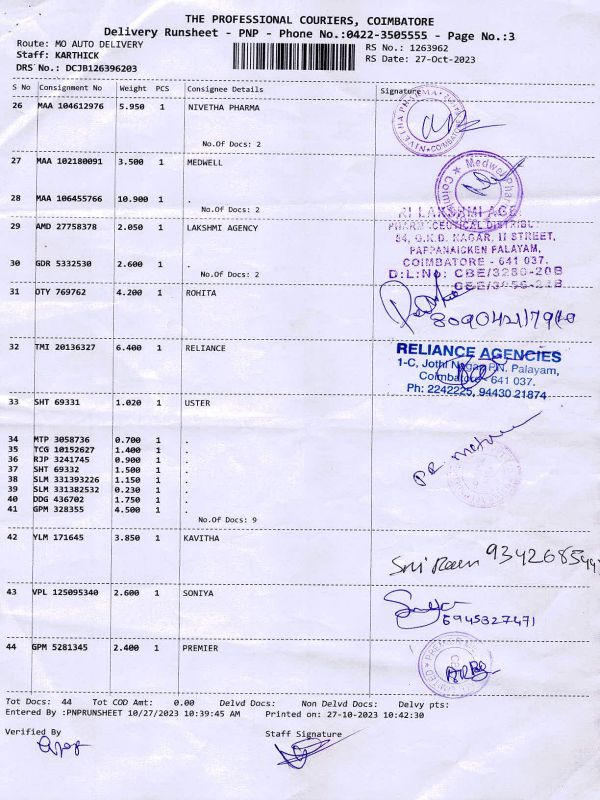 THE PROFESSIONAL COURIERS, COIMBATORE
Delivery Runsheet - PNP - Phone No.:0422-3505555 - Page No.:3
Route: MO AUTO DELIVERY
RS No.: 1263962
Staff: KARTHICK
RS Date: 27-Oct-2023
DRS No.: DCJB126396203
S No Consignment No Weight PCS Consignee Details Signature
26 MAA 104612976 5.950 1 NIVETHA PHARMA
No.Of Docs: 2
27 MAA 102180091 3.500 1 MEDWELL
28 MAA 106455766 10.900 1 .
No.Of Docs: 2
29 AMD 27758378 2.050 1 LAKSHMI AGENCY
30 GDR 5332530 2.600 1 .
No.Of Docs: 2
LAKSHMI AGE
PHARMACEUTICAL DISTRIBUT
54, G.K.D. NAGAR, II STREET,
PAPPANAICKEN PALAYAM,
COIMBATORE - 641 037.
D:L:NO: CBE/3280-20B
31 DTY 769762 4.200 1 ROHITA
32 TMI 20136327 6.400 1 RELIANCE
RELIANCE AGENCIES
1-C, Jothi Nagar, P.N. Palayam,
Coimbatore - 641 037.
Ph: 2242225, 94430 21874
33 SHT 69331 1.020 1 USTER
34 MTP 3058736 0.700 1 .
35 TCG 10152627 1.400 1 .
36 RJP 3241745 0.900 1 .
37 SHT 69332 1.500 1 .
38 SLM 331393226 1.150 1 .
39 SLM 331382532 0.230 1 .
40 DDG 436702 1.750 1 .
41 GPM 328355 4.500 1 .
No.Of Docs: 9
42 YLM 171645 3.850 1 KAVITHA
43 VPL 125095340 2.600 1 SONIYA
44 GPM 5281345 2.400 1 PREMIER
Tot Docs: 44 Tot COD Amt: 0.00 Delvd Docs: Non Delvd Docs: Delvy pts:
Entered By :PNPRUNSHEET 10/27/2023 10:39:45 AM Printed on: 27-10-2023 10:42:30
Verified By
Staff Signature